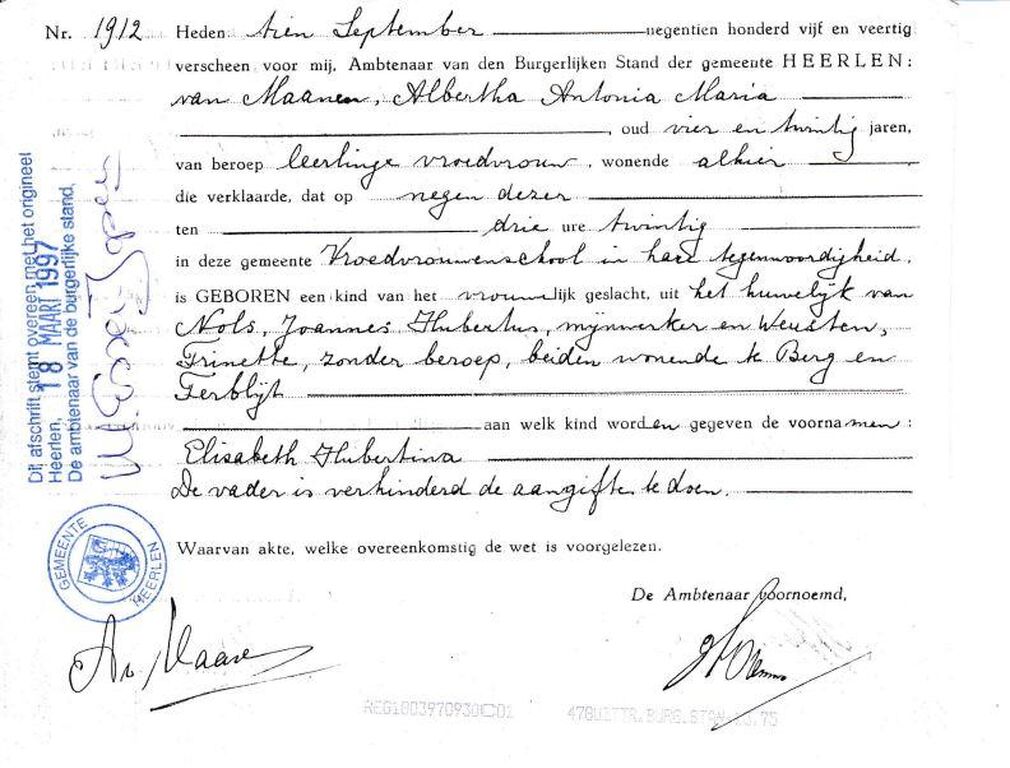 Nr. 1912 Heden tien September negentien honderd vijf en veertig
verscheen voor mij, Ambtenaar van den Burgerlijken Stand der gemeente HEERLEN:
van Maanen, Albertha Antonia Maria
, oud vier en twintig jaren,
van beroep leerlinge vroedvrouw, wonende alhier
die verklaarde, dat op negen dezer
ten drie ure twintig
in deze gemeente Vroedvrouwenschool in hare tegenwoordigheid,
is GEBOREN een kind van het vrouwelijk geslacht, uit het huwelijk van
Nols, Joannes Hubertus, mijnwerker en Weusten,
Trinette, zonder beroep, beiden wonende te Berg en
Terblijt
aan welk kind worden gegeven de voornamen:
Elisabeth Hubertina
De vader is verhinderd de aangifte te doen.
Waarvan akte, welke overeenkomstig de wet is voorgelezen.
De Ambtenaar voornoemd,
Dit afschrift stemt overeen met het origineel
Heerlen, 18 MAART 1997
De ambtenaar van de burgerlijke stand,
GEMEENTE HEERLEN
A v Maanen